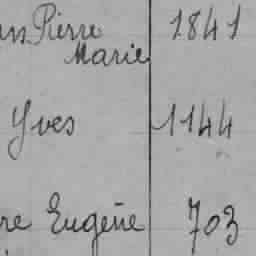 Pierre 1841
Marie
Yves 1144
re Eugène 703